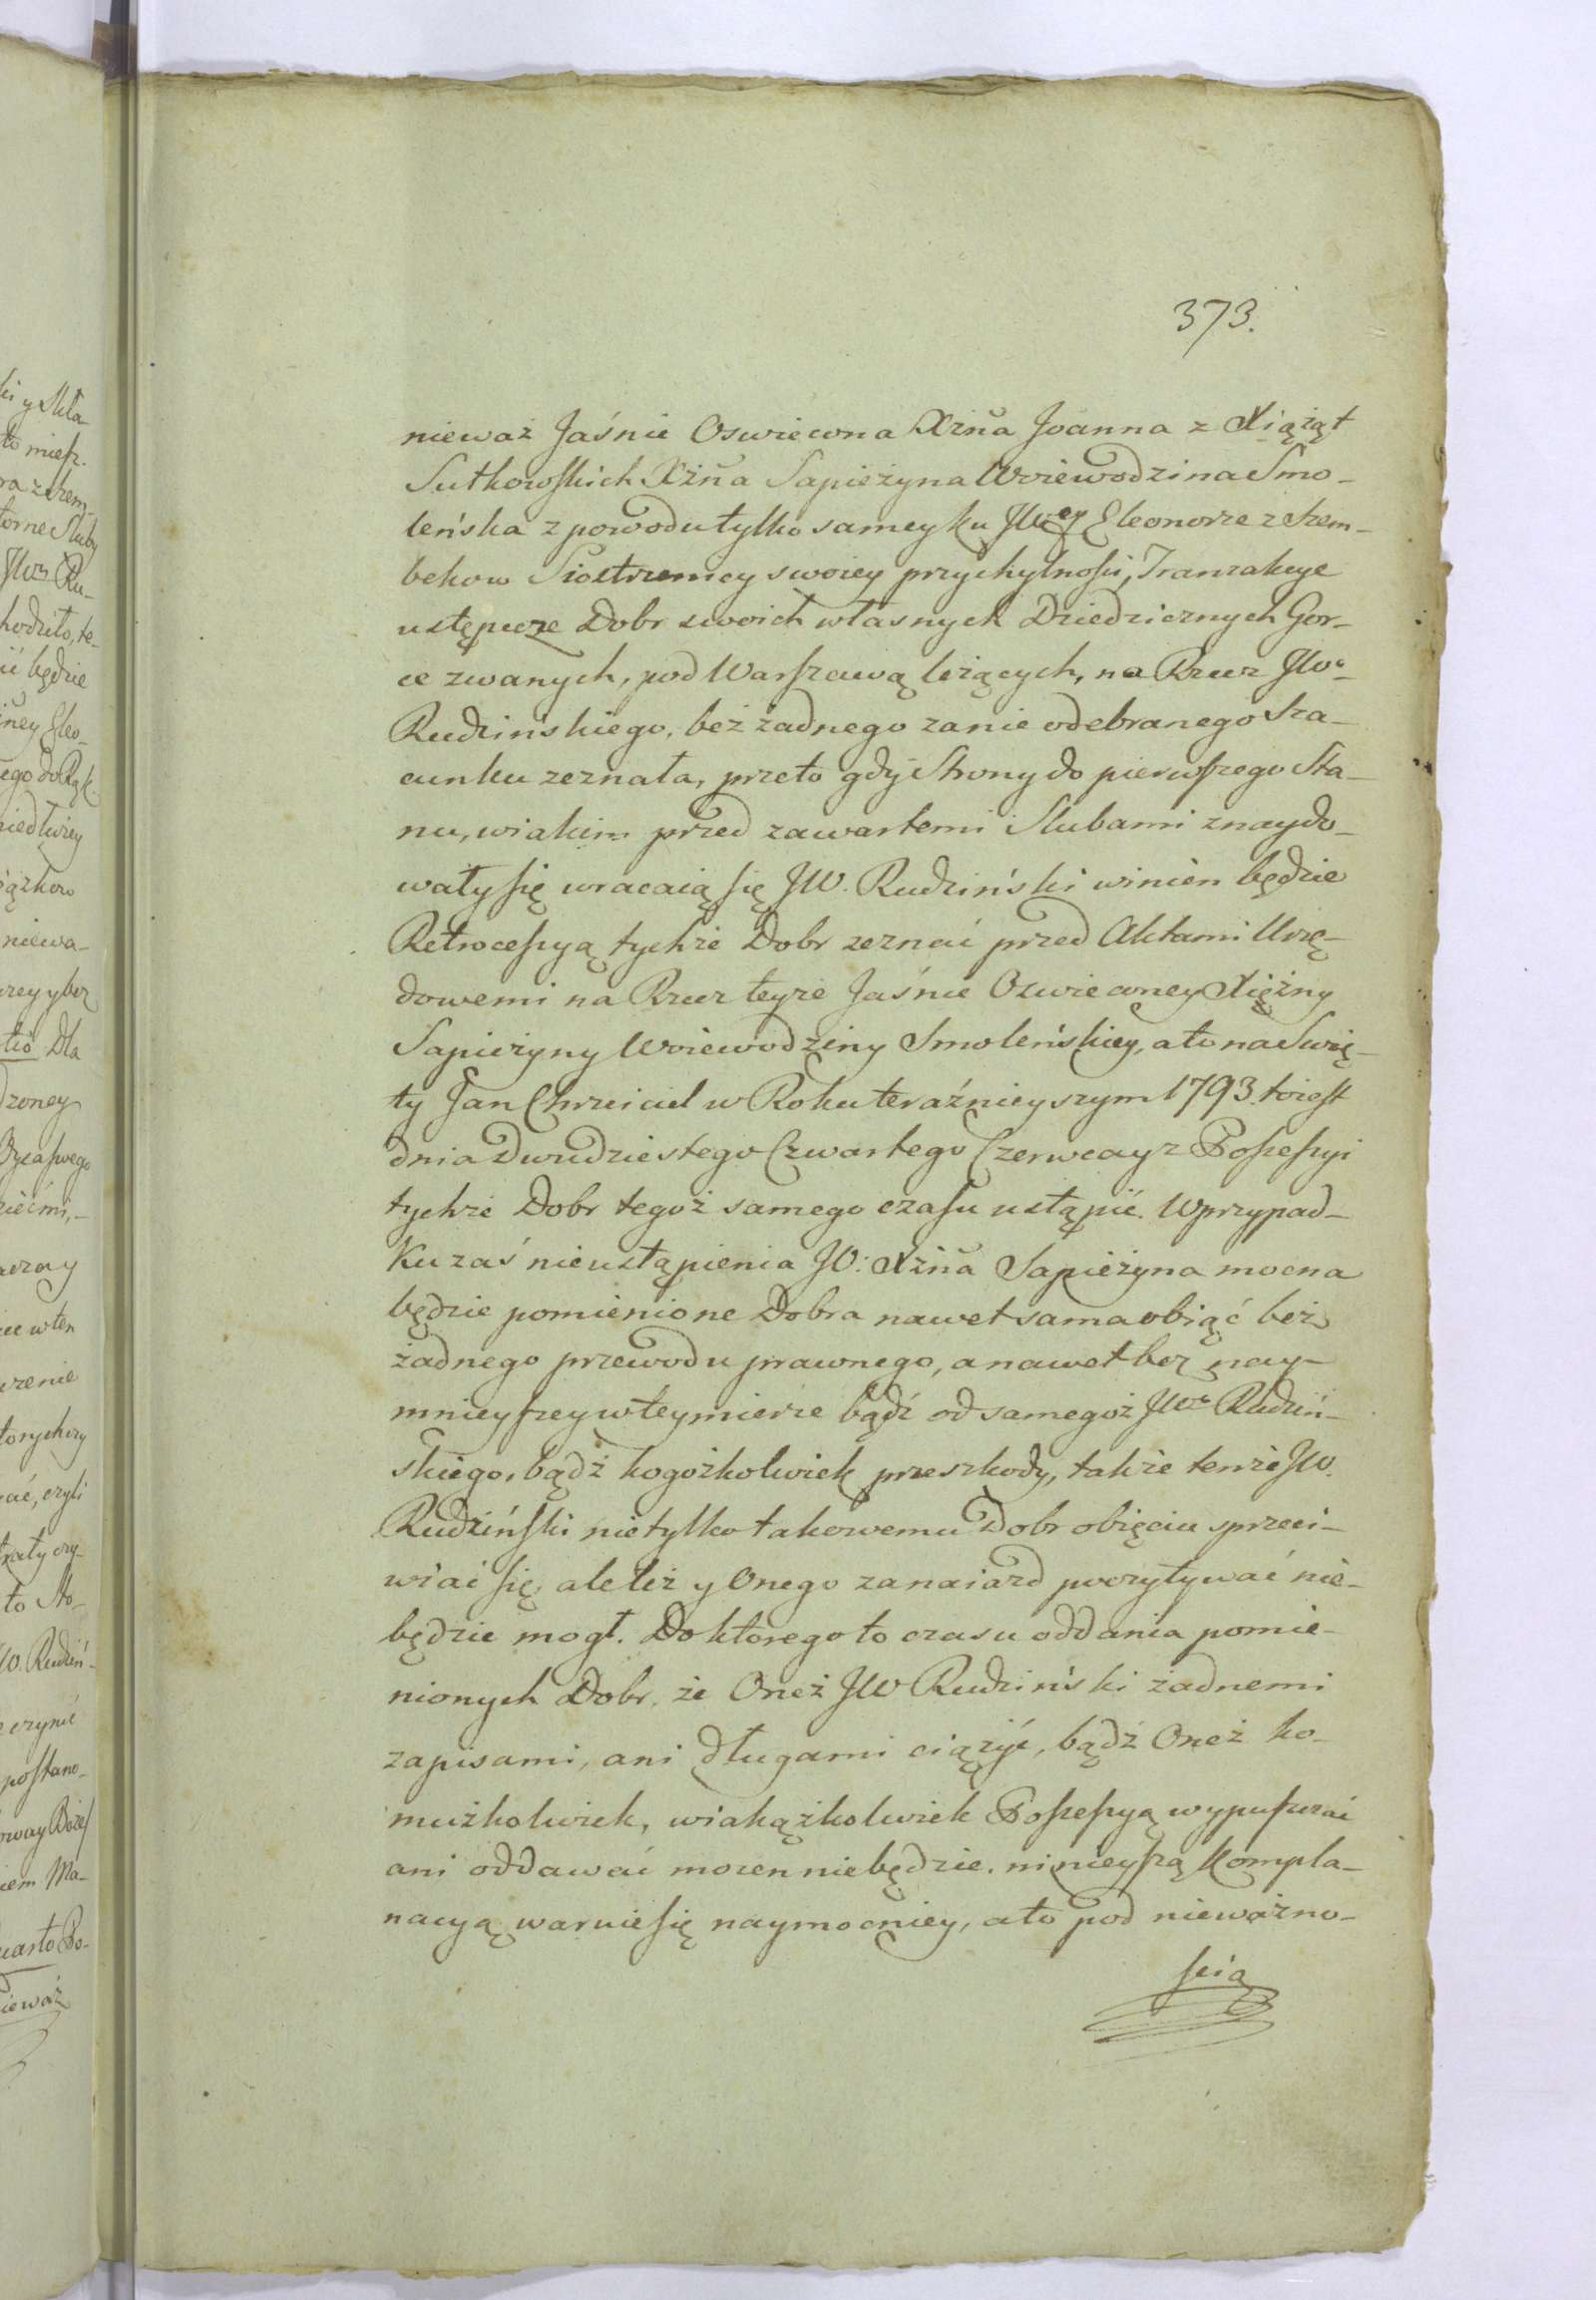 373.
nieważ Jaśnie Oswiecona Xżña Joanna z Xiążąt
Sułkowskich Xżña Sapieżyna Woiewodzina Smo-
leńska z powodu tylko samey ku JWey Eleonorze z Szem-
bekow Siostrzenicy swoiey przychylności, Tranzakcye
ustępcze Dobr swoich własnych Dziedzicznych Gor-
ce zwanych, pod Warszawą leżących, na Rzecz JWo
Rudzinskiego, beż żadnego zanie odebranego Sza-
cunku zeznała, przeto gdy Strony do pierwszego Sta-
nu, wiakim przed zawartemi Slubami znaydo-
wały się wracaią się JW. Rudziński winien będzie
Retrocessyą tychże Dobr zeznać przed Aktami Urzę-
dowemi na Rzecz teyże Jaśnie Oswieconey Xiężny
Sapieżyny Woiewodziny Smoleńskiey, a to na Swię-
ty Jan Chrzciciel w Roku teraźnieyszym 1793. toiest
dnia Dwudziestego Czwartego Czerwca y z Possessyi
tychże Dobr tegoż samego czasu ustąpić. W przypad-
Ku zaś nieustąpienia JO: Xżña Sapieżyna mocna
będzie pomienione Dobra nawet sama obiąć beż
żadnego przewodu prawnego, a nawet bez nay-
mnieyszey wteymierze bądź od samegoż JWo Rudziń-
skiego, bądź kogożkolwiek przeszkody, także tenże JW.
Rudziński nietylko takowemu Dobr obięciu sprzeci-
wiać się, ale też y Onego zanaiazd poczytywać nie-
będzie mogł. Do ktorego to czasu oddania pomie-
nionych Dobr, że Oneż JW Rudziński żadnemi
zapisami, ani długami ciążyć, bądź Oneż ko-
mużkolwiek, wiakążkolwiek Possessyą wypuszczać
ani oddawać mocen niebędzie. ninieyszą Kompla-
nacyą waruie się naymocniey, a to pod nieważno-
scią